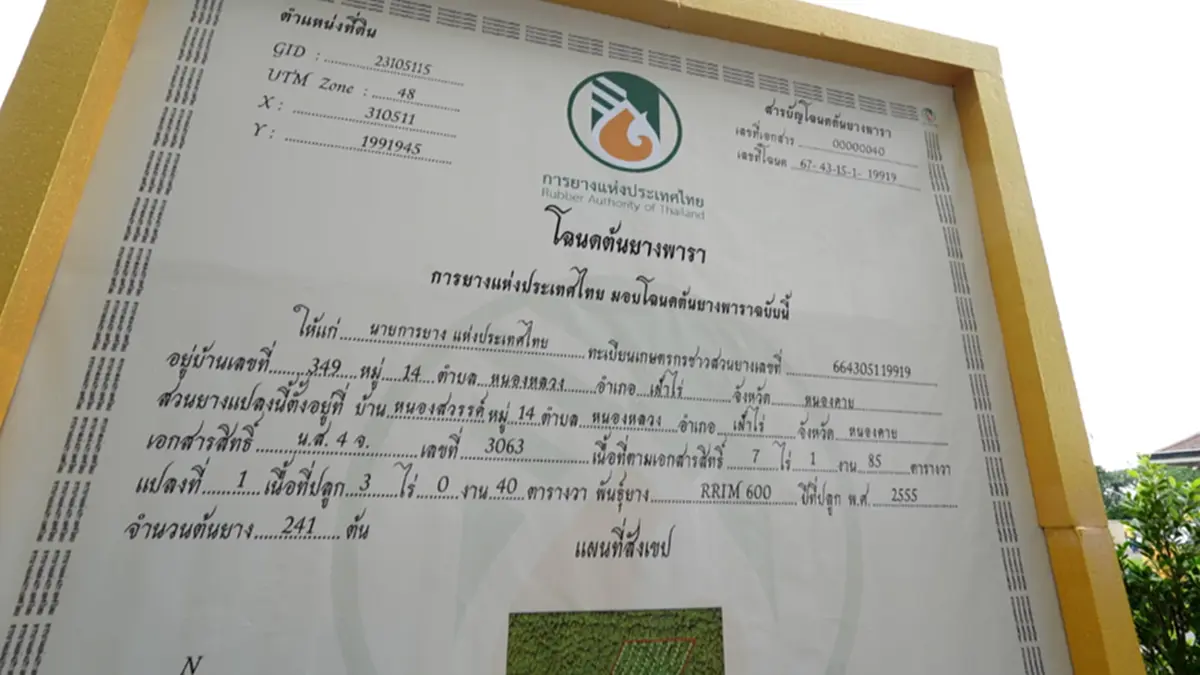 ตำแหน่งที่ดิน
GID : 23105115
UTM Zone : 48
X : 310511
Y : 1991945
การยางแห่งประเทศไทย
Rubber Authority of Thailand
สารบัญโฉนดต้นยางพารา
เลขที่เอกสาร 00000040
เลขที่โฉนด 67-43-15-1-19919
โฉนดต้นยางพารา
การยางแห่งประเทศไทย มอบโฉนดต้นยางพาราฉบับนี้
ให้แก่ นายการยาง แห่งประเทศไทย ทะเบียนเกษตรกรชาวสวนยางเลขที่ 664305119919
อยู่บ้านเลขที่ 349 หมู่ 14 ตำบล หนองหลวง อำเภอ เฝ้าไร่ จังหวัด หนองคาย
สวนยางแปลงนี้ตั้งอยู่ที่ บ้าน หนองสวรรค์ หมู่ 14 ตำบล หนองหลวง อำเภอ เฝ้าไร่ จังหวัด หนองคาย
เอกสารสิทธิ์ น.ส. 4 จ. เลขที่ 3063 เนื้อที่ตามเอกสารสิทธิ์ 7 ไร่ 1 งาน 85 ตารางวา
แปลงที่ 1 เนื้อที่ปลูก 3 ไร่ 0 งาน 40 ตารางวา พันธุ์ยาง RRIM 600 ปีที่ปลูก พ.ศ. 2555
จำนวนต้นยาง 241 ต้น
แผนที่สังเขป
N